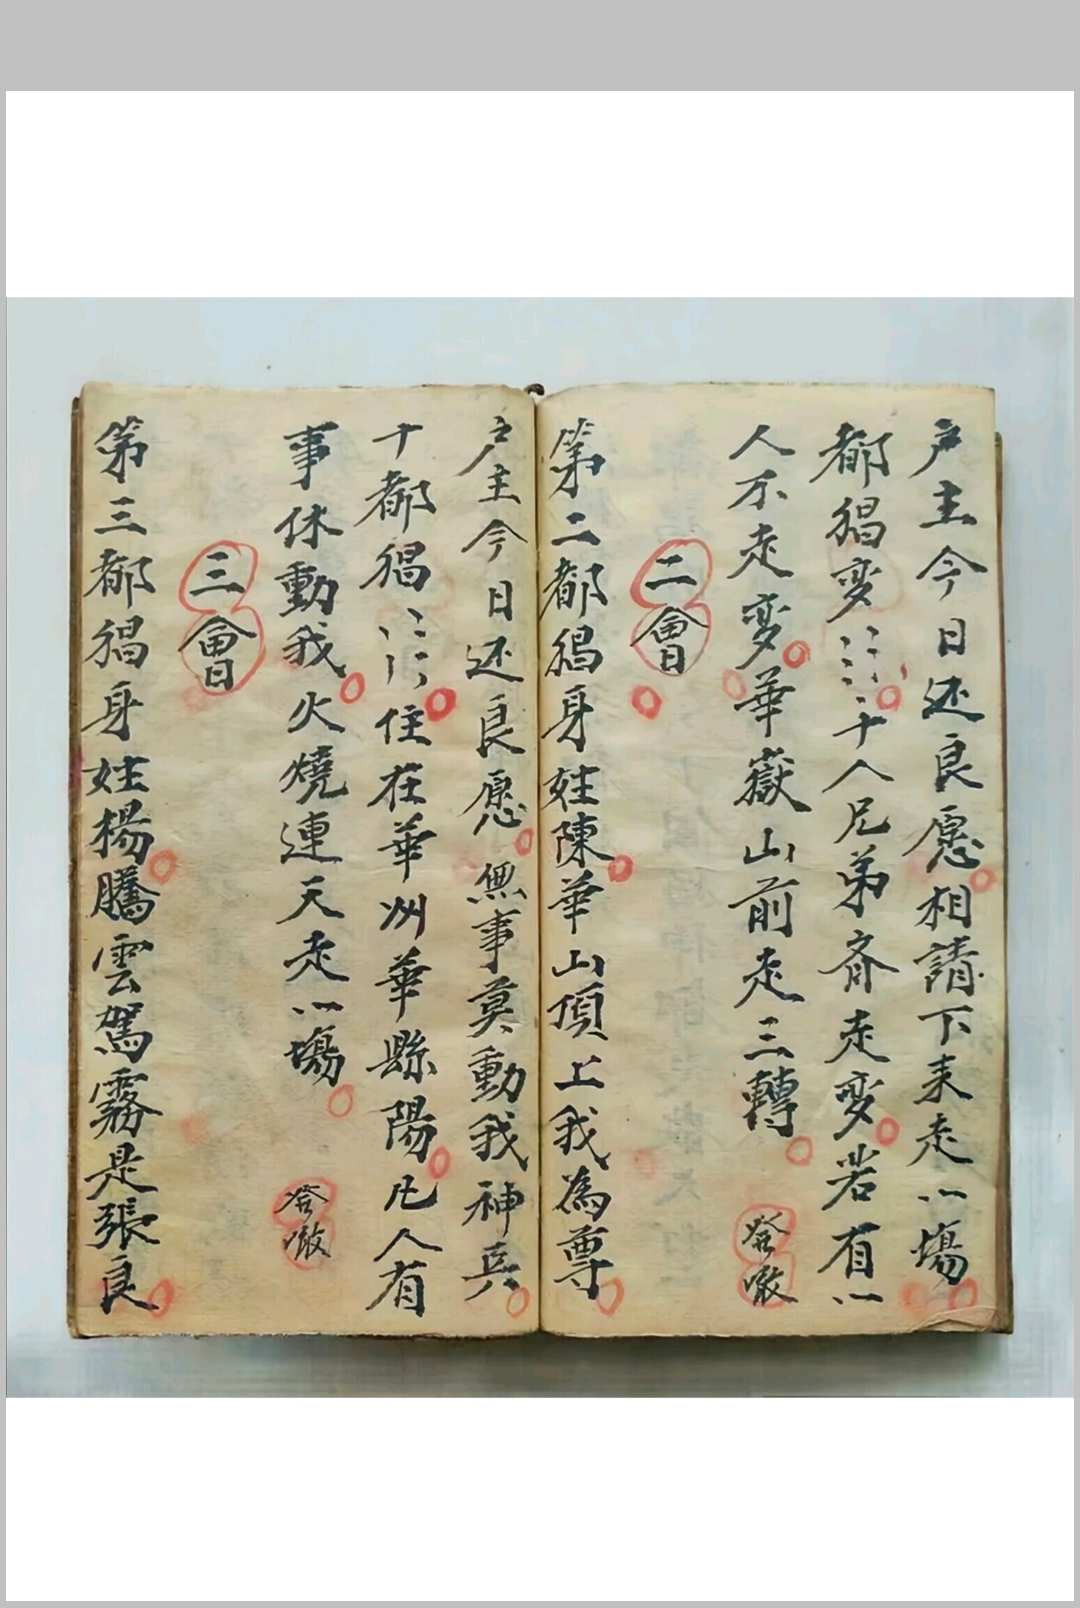 户主今日还良愿相請下来走一塲
都猖变〻〻〻十人兄弟齐走变若有一
人不走变華嶽山前走三轉 癹噉
二會
第二都猖身姓陳華山頂上我為尊
户主今日还良愿無事莫動我神兵
十都猖〻〻住在華州華縣陽凡人有
事休動我火燒連天走一塲 癹噉
三會
第三都猖身姓楊騰雲駕霧是張良